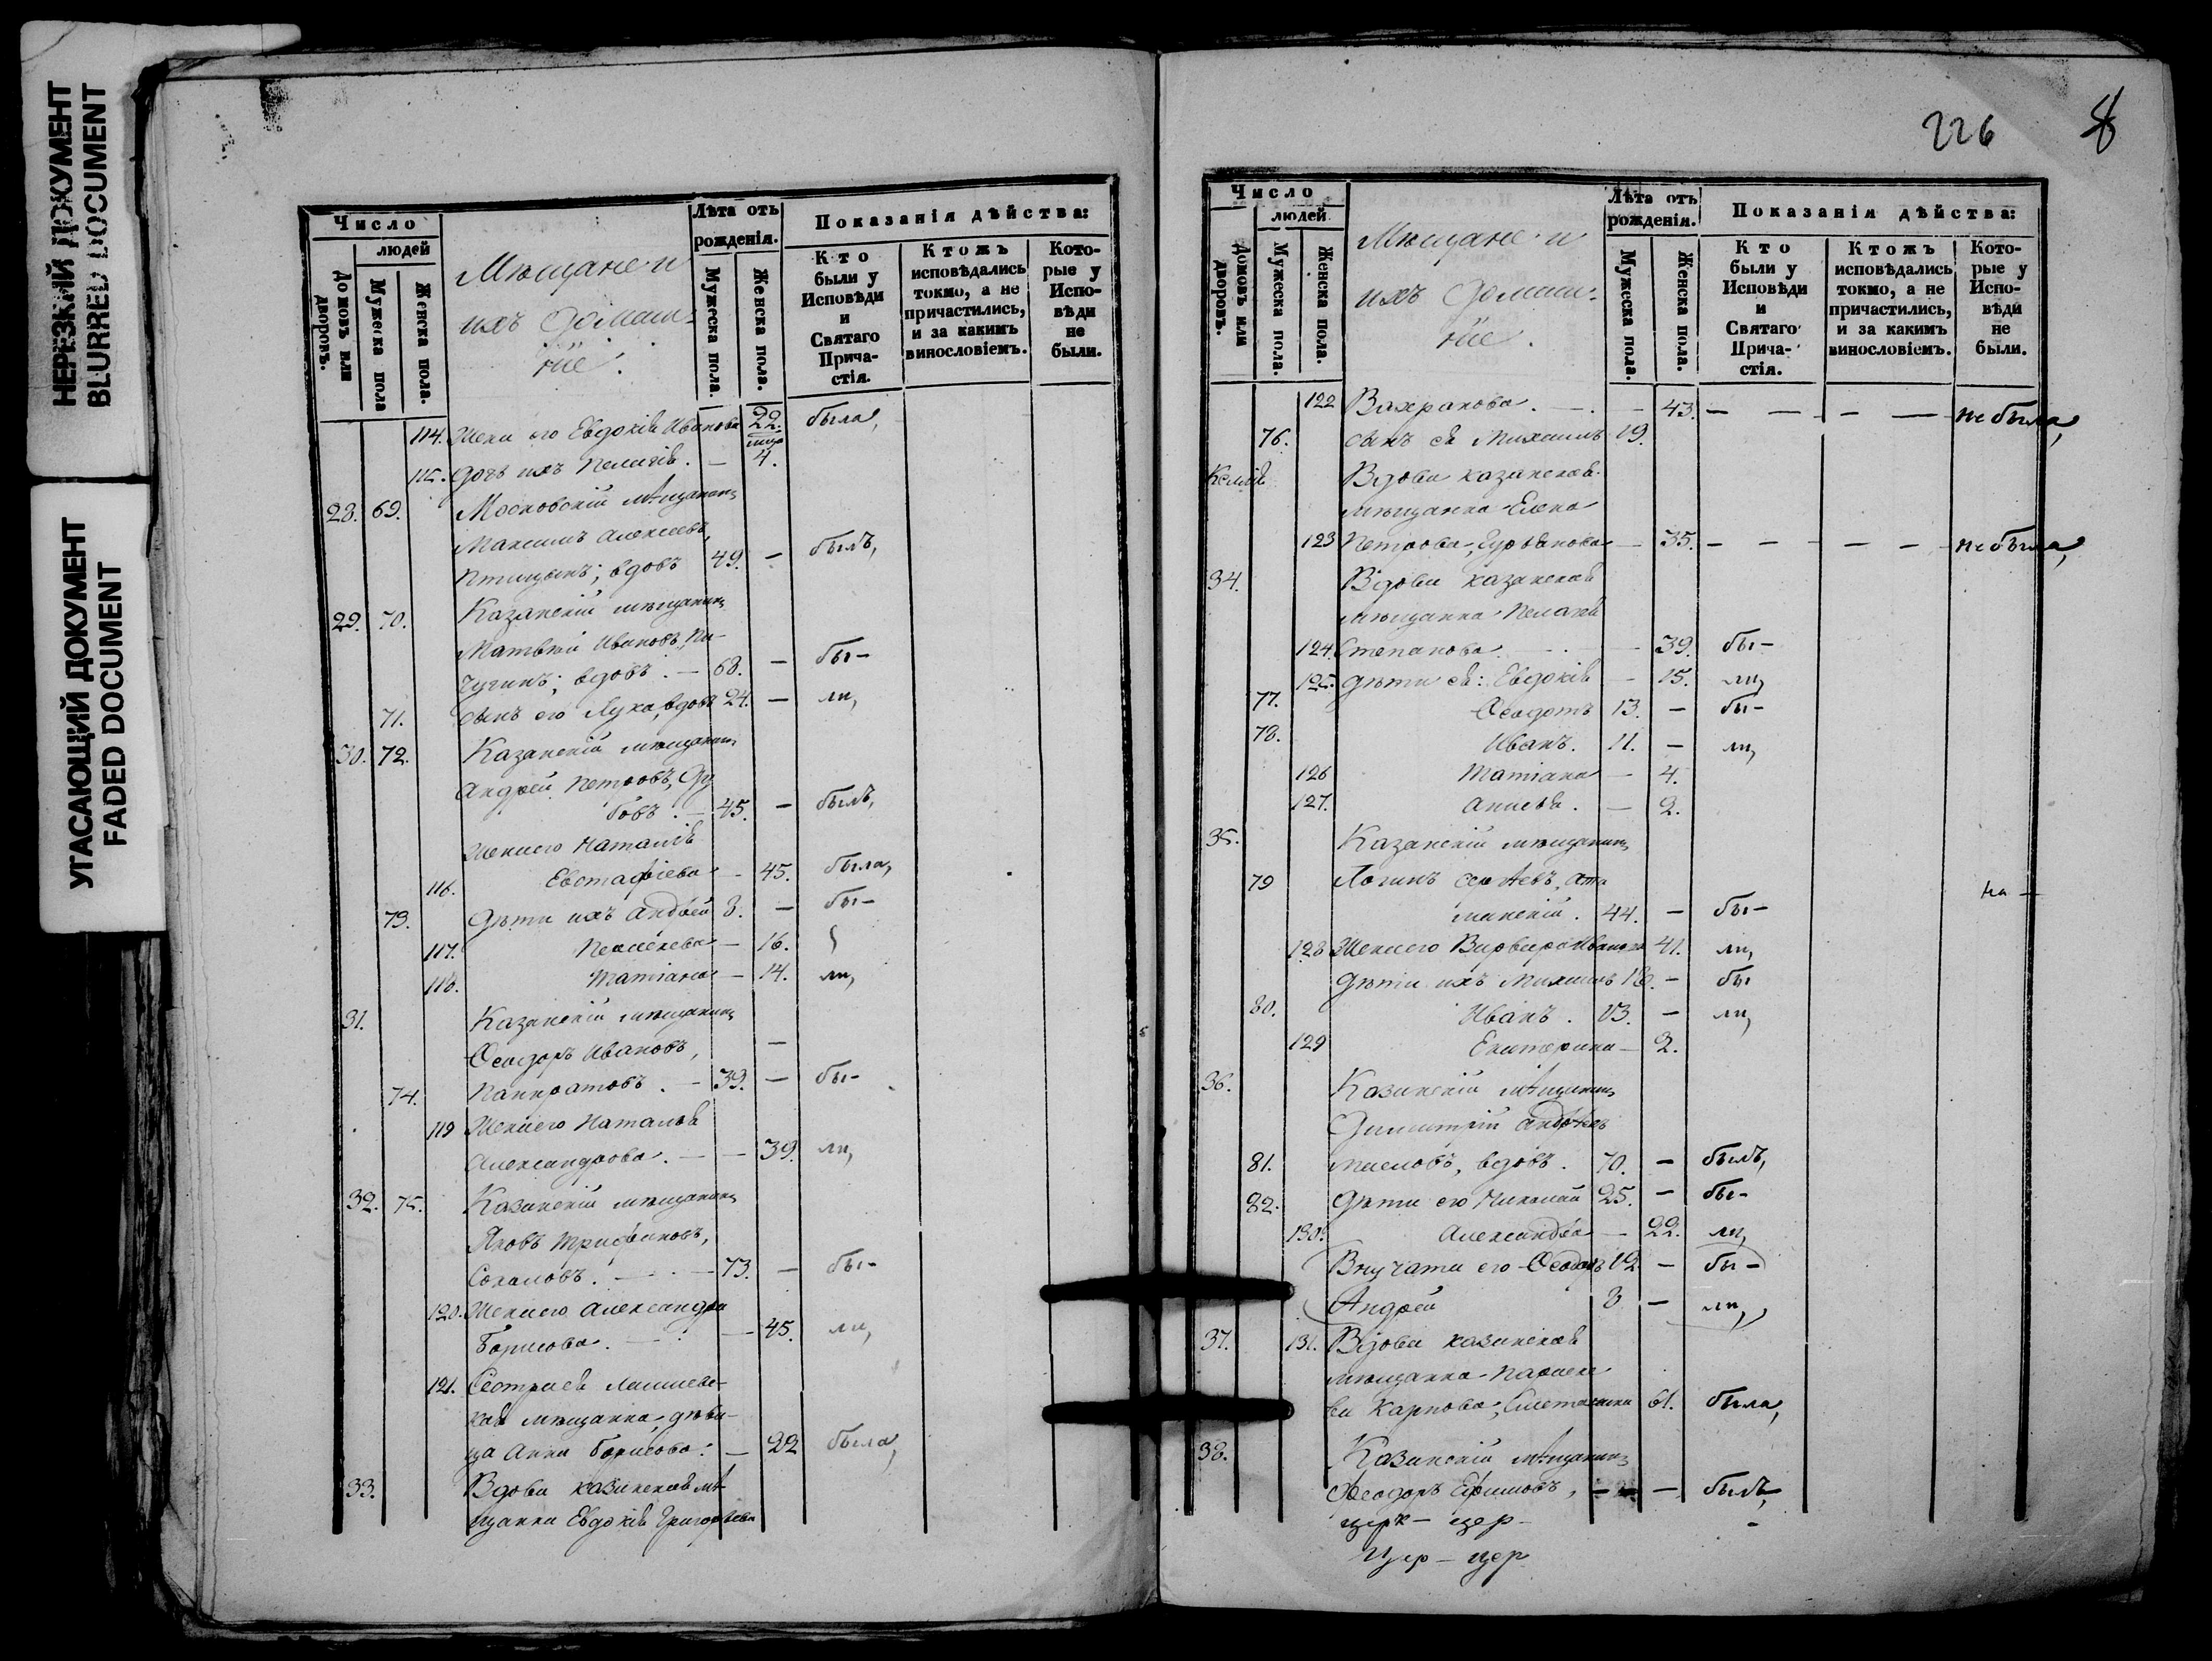 НЕРЕЗКИЙ ДОКУМЕНТ
BLURRED DOCUMENT
УГАСАЮЩИЙ ДОКУМЕНТ
FADED DOCUMENT
Число
людей
Домовъ или дворовъ.
Мужеска пола
Женска пола.
Мѣщане и
ихъ домаш-
ніе.
Лѣта отъ рожденія.
Мужеска пола.
Женска пола.
Показанія дѣйства:
Кто были у Исповѣди и Святаго Прича-стія.
Ктожъ исповѣдались токмо, а не причастились, и за какимъ винословіемъ.
Кото-рые у Испо-вѣди не были.
114. Жена его Евдокія Иванова 22. была,
115. Дочь ихъ Пелагія. — 4.
28. 69. Московскій мѣщанинъ
Максимъ Алексѣевъ,
Птицынъ; вдовъ 49. — былъ,
29. 70. Казанскій мѣщанинъ
Матвѣй Ивановъ, Пи-
чугинъ; вдовъ. — 68. — бы-
71. сынъ его Лука, вдовъ 24. — ли,
30. 72. Казанскій мѣщанинъ
Андрей Петровъ, Ду
бовъ. — 45. — былъ,
Жена его Наталія
116. Евстафіева — 45. была,
73. Дѣти ихъ Андрей 8. — бы-
117. — 16.
118. Татіана — 14. ли,
31. Казанскій мѣщанинъ
Ѳеодоръ Ивановъ, —
74. Панкратовъ. — 39. — бы-
119 Жена его Наталья
Александрова. — — 39. ли,
32. 75. Казанскій мѣщанинъ
Яковъ Трифоновъ,
Соколовъ. — 73. — бы-
120. Жена его Александра
Борисова. — — 45. ли,
121. Сестра ея Лаишевс-
кая мѣщанка, дѣви-
ца Анна Борисова: — 22 была,
33. Вдова казанская мѣ
щанка Евдокія Григорьева
226 8
Число
людей
Домовъ или дворовъ.
Мужеска пола.
Женска пола.
Мѣщане и
ихъ домаш-
ніе.
Лѣта отъ рожденія.
Мужеска пола.
Женска пола.
Показанія дѣйства:
Кто были у Исповѣди и Святаго Прича-стія.
Ктожъ исповѣдались токмо, а не причастились, и за какимъ винословіемъ.
Кото-рые у Испо-вѣди не были.
122 Вахракова. — — 43. — — — — не была,
76. сынъ ея Михаилъ 19.
Келія Вдова казанская
мѣщанка Елена
123 Петрова, — 35. — — — — — не была,
34. Вдова казанская
мѣщанка Пелагія
124. Степанова. — — 39. бы-
125. дѣти ея: Евдокія — 15. ли,
77. Ѳеодотъ 13. — бы-
78. Иванъ. 11. — ли,
126 Татіана — 4.
127. Анисья. — 2.
35. Казанскій мѣщанинъ
79 Логинъ Сергѣевъ, Ата
манскій. 44. — бы- на —
128 Жена его Варвара Иванова 41. ли,
Дѣти ихъ Михаилъ 18. — бы
80. Иванъ. 13. — ли,
129 Екатерина — 2.
36. Казанскій мѣщанинъ
Димитрій Андрѣевъ
81. Масловъ, вдовъ. 70. — былъ,
82. Дѣти его Николай 25. — бы-
130. Александра — 22. ли,
Внучата его Ѳеодоръ 12 — бы-
Андрей 8 — ли,
37. 131. Вдова казанская
мѣщанка Параске
ва Карпова, Сметанина 61. была,
38. Казанскій мѣщанинъ
Ѳеодоръ Ефимовъ, — — былъ,
церк- цер-
Цер- цер